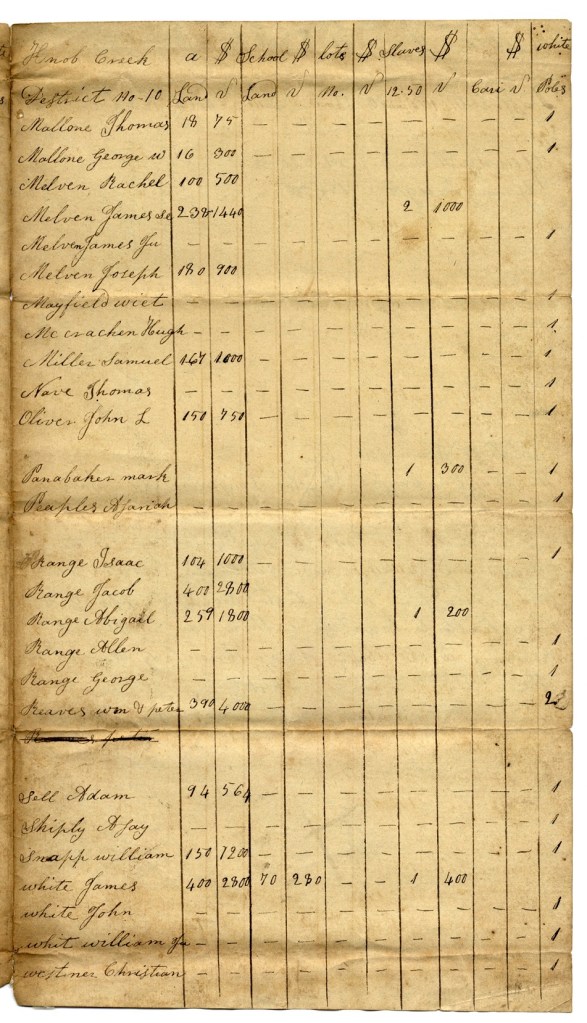 Knob Creek a $ School $ lots $ Slaves $ $ white
District No-10 Land V Land V No. V 12.50 V Cari V Poles
Mallone Thomas 18 75 — — — — — — — — 1
Mallone George W 16 300 — — — — — — — — 1
Melven Rachel 100 500
Melven James Se 238 1440 2 1000
Melven James Ju — — — — — — — — — — 1
Melven Joseph 180 900
Mayfield wiet — — — — — — — — — — 1
Mc cracken Hugh — — — — — — — — — — 1
Miller Samuel 167 1000 — — — — — — — — 1
Nave Thomas — — — — — — — — — — 1
Oliver John L 150 750 — — — — — — — — 1
Panabaker mark 1 300 — — 1
Peaples Asariah — — — — — — — — — — 1
Range Isaac 104 1000 — — — — — — — — 1
Range Jacob 400 2800
Range Abigail 259 1800 1 200
Range Allen — — — — — — — — — — 1
Range George — — — — — — — — — — 1
Reaves wm & peter 390 4000 — — — — — — — — 2
Sell Adam 94 564 — — — — — — — — 1
Shiply Asay — — — — — — — — — — 1
Snapp william 150 1200 — — — — — — — — 1
white James 400 2800 70 280 — — 1 400
white John — — — — — — — — — — 1
whit william Ju — — — — — — — — — — 1
westner Christian — — — — — — — — — — 1